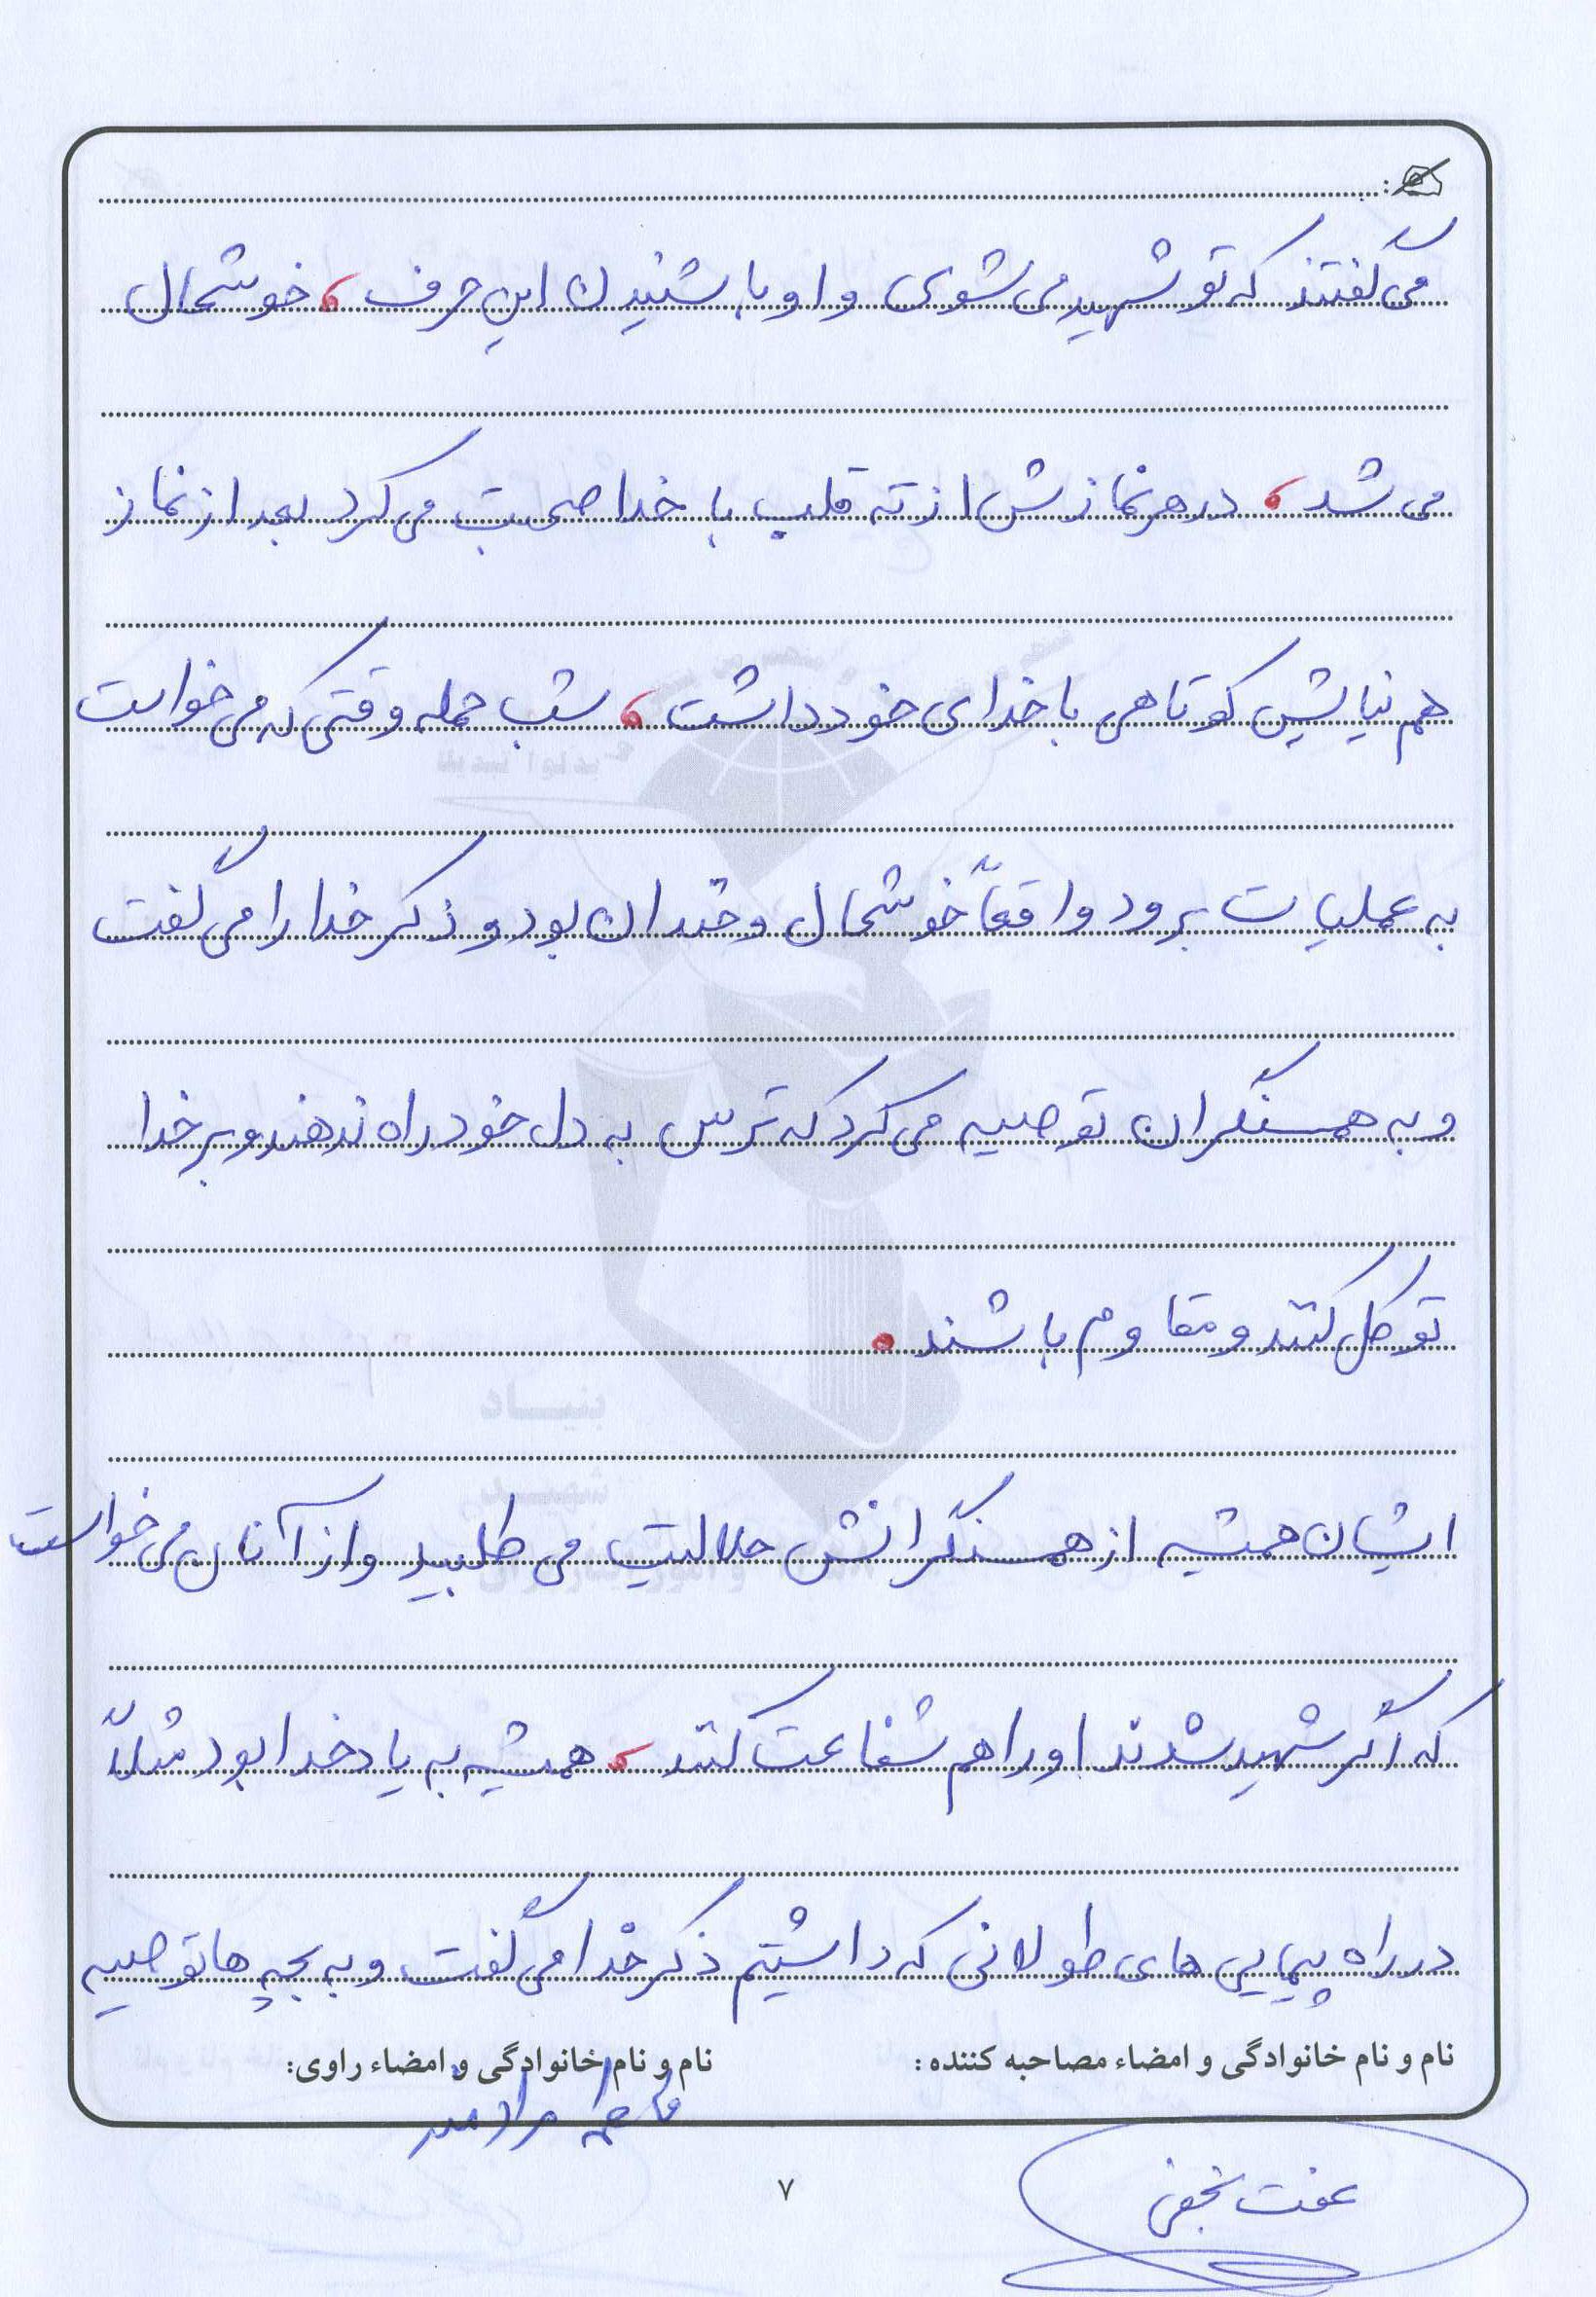 می گفتند که تو شهید می شوی و او با شنیدن این حرف، خوشحال
می شد، در هر نمازش از ته قلب با خدا صحبت می کرد بعد از نماز
هم نیایش کوتاهی با خدای خود داشت، شب حمله وقتی که می خواست
به عملیات برود واقعاً خوشحال و خندان بود و ذکر خدا را می گفت
و به همسنگران توصیه می کرد که ترس به دل خود راه ندهند و بر خدا
توکل کنند و مقاوم باشند.
ایشان همیشه از همسنگرانش حلالیت می طلبید و از آنان می خواست
که اگر شهید شدند او را هم شفاعت کنند، همیشه به یاد خدا بود مثلاً
در راه پیمایی های طولانی که داشتیم ذکر خدا می گفت و به بچه ها توصیه
نام و نام خانوادگی و امضاء مصاحبه کننده: نام و نام خانوادگی و امضاء راوی:
عفت نجفی
۷
بنیاد